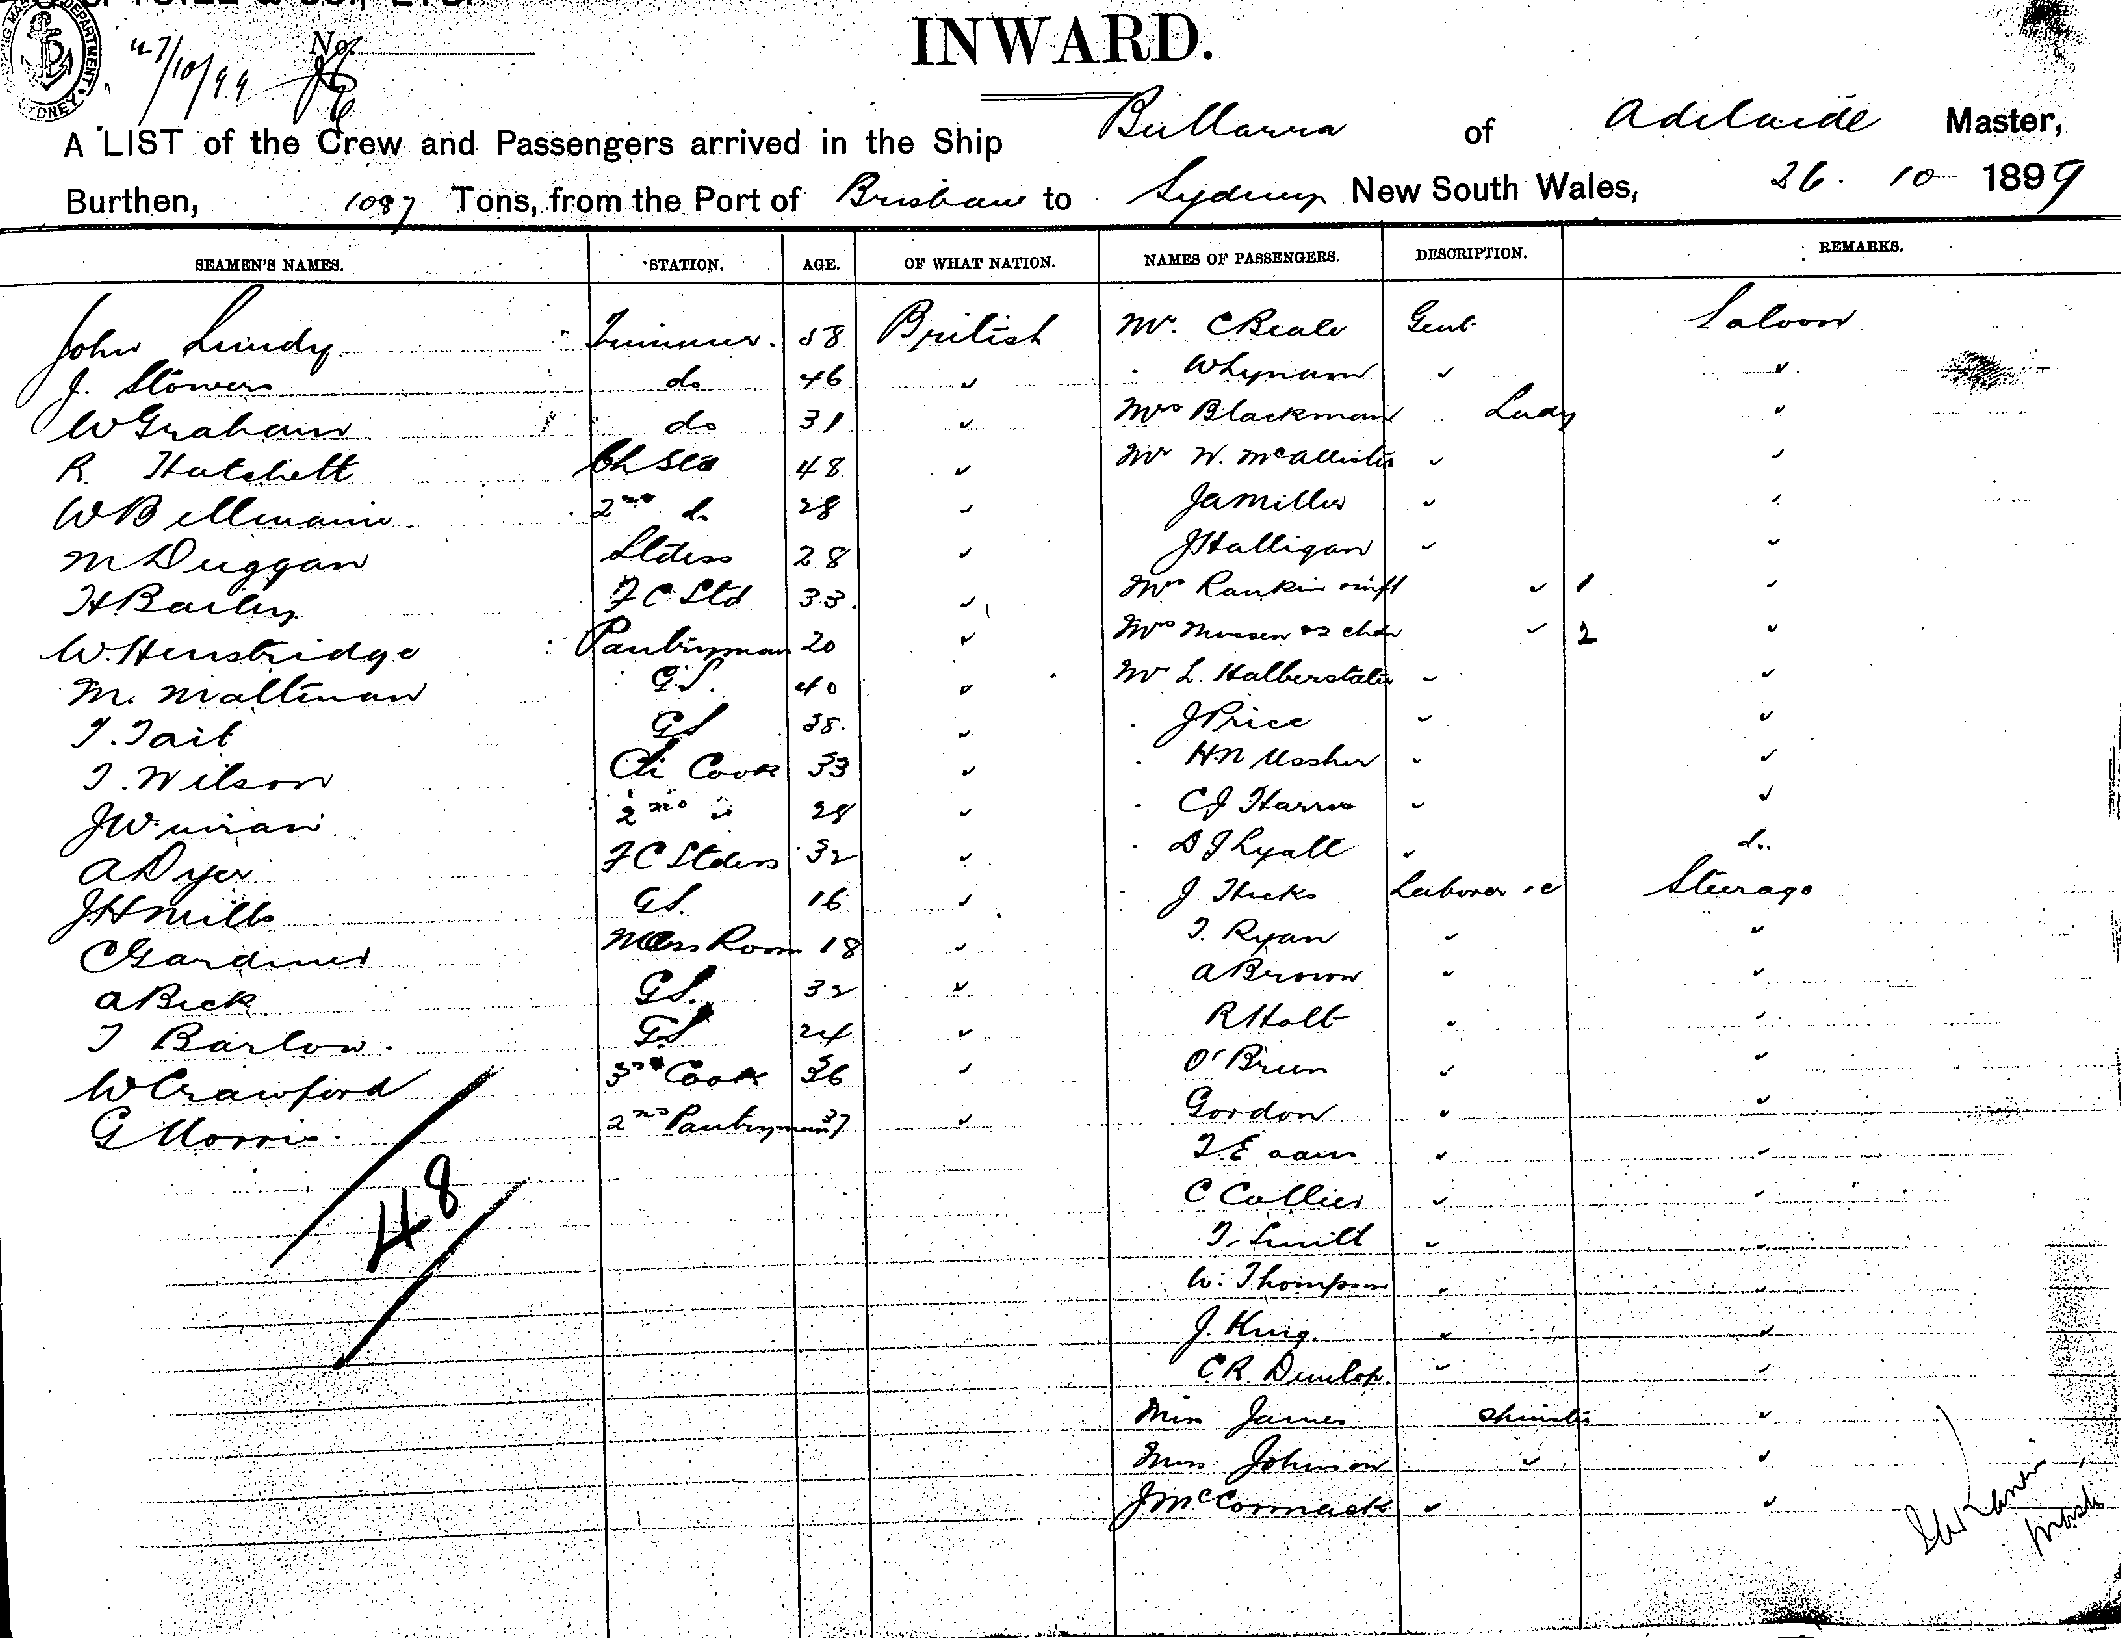 INWARD.
27/10/99 No.
A LIST of the Crew and Passengers arrived in the Ship Bullarra of Adelaide Master,
Burthen, 1087 Tons, from the Port of Brisbane to Sydney New South Wales, 26. 10 1899
SEAMEN'S NAMES. STATION. AGE. OF WHAT NATION. NAMES OF PASSENGERS. DESCRIPTION. REMARKS.
John Lundy Trimmer. 58 British Mr. C Beale Gent Saloon
J. Stowers do 46 " Whynam " "
W Graham " do 31 " Mrs Blackman Lady "
R Hatchett Ch Std 48 " Mr W. McAllister " "
W Bellmaine 2nd do 28 " J A Miller " "
M Duggan Stdess 28 " J Halligan " "
H Bailey F C Std 33 " Mrs Rankin & inft " 1 "
W. Henstridge Pantryman 20 " Mrs & 2 chdn " 2 "
M. Maltman G.S. 40 " Mr L. Halberstater " "
T. Tait GS 38. " J Price " "
T. Wilson Ch Cook 33 " H N Ussher " "
J W 2nd " 28 " C J Harris " "
A Dyer F C Stdess 32 " D J Lyall " do.
J H Mills G S. 16 " J Hicks Laborer &c Steerage
C Gardiner Mess Room 18 " T. Ryan " "
A Beck G S. 32 " A Brown " "
T Barlow. G.S 24 " R Holt " "
W Crawford 3rd Cook 36 " O'Brien " "
G Morris. 2nd Pantryman 37 " Gordon " "
T. Evans " "
48 C Collier " "
T. Smith " "
W. Thompson " "
J. King. " "
C R. Dunlop. " "
Miss James Spinster "
Miss Johnson " "
J McCormack " "